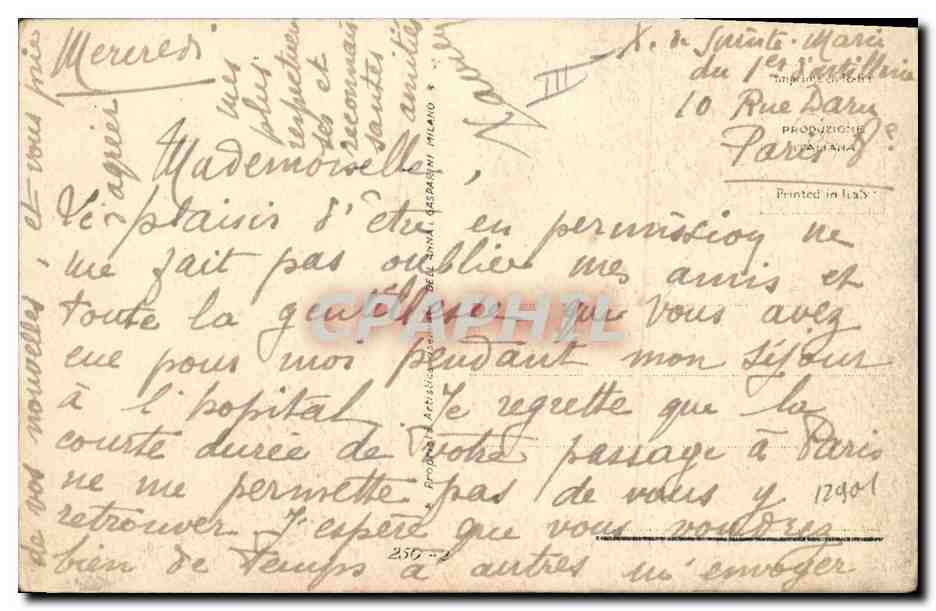 Mercredi
X. de Sainte-Marie
du 1er d'artillerie
10 Rue Daru
Paris 8e
Imprimé en Italie
PRODUZIONE
ITALIANA
Printed in Italy
Mademoiselle,
Le plaisir d'être en permission ne
me fait pas oublier mes amis et
toute la gentillesse que vous avez
eue pour moi pendant mon séjour
à l'hopital. Je regrette que la
courte durée de votre passage à Paris
ne me permette pas de vous y
retrouver. J'espère que vous voudrez
bien de temps à autres m'envoyer
de vos nouvelles, et vous prie
d'agréer
mes
plus
respectueu
ses et
reconnais
santes
amitiés
Xavier
III
12901
250-2
Proprietà Artistica DELL'ANNA & GASPARINI MILANO
CPAPHIL